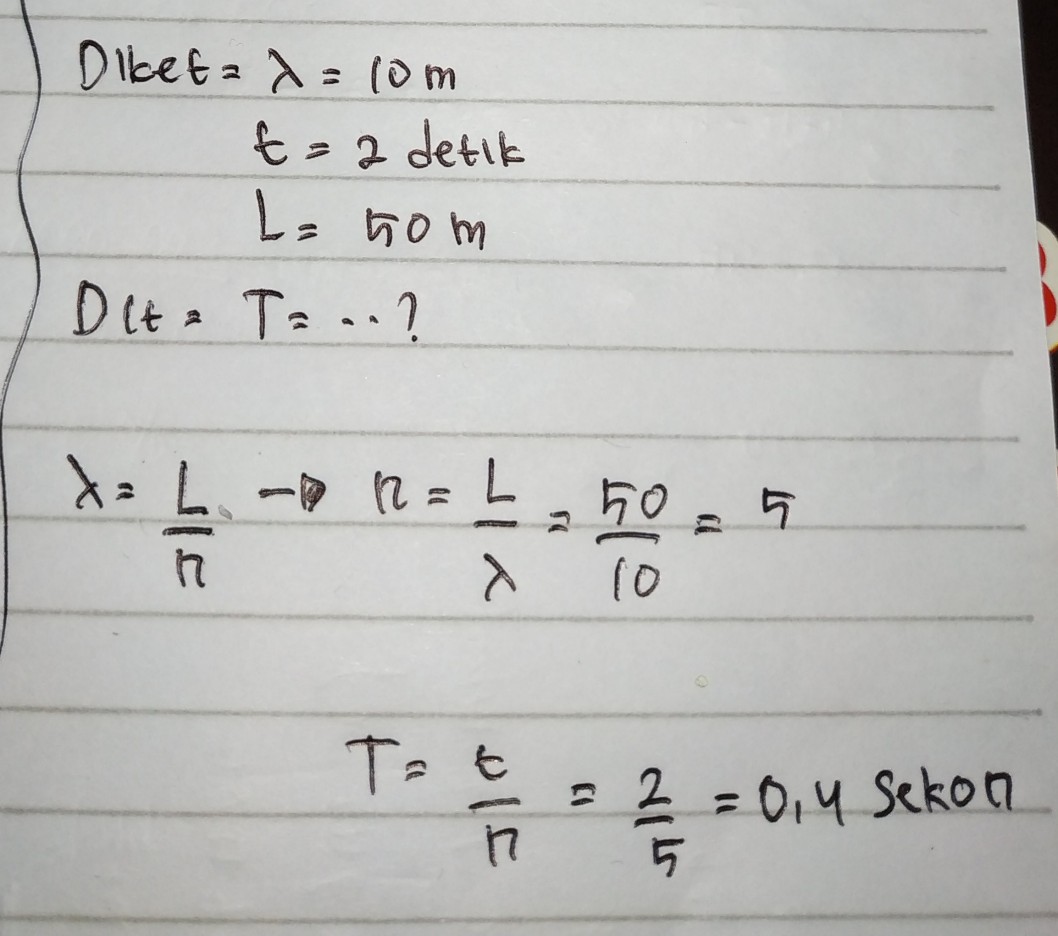 Diket = λ = 10 m
t = 2 detik
L = 50 m
Dit = T = ...?
λ = L/n → n = L/λ = 50/10 = 5
T = t/n = 2/5 = 0,4 sekon